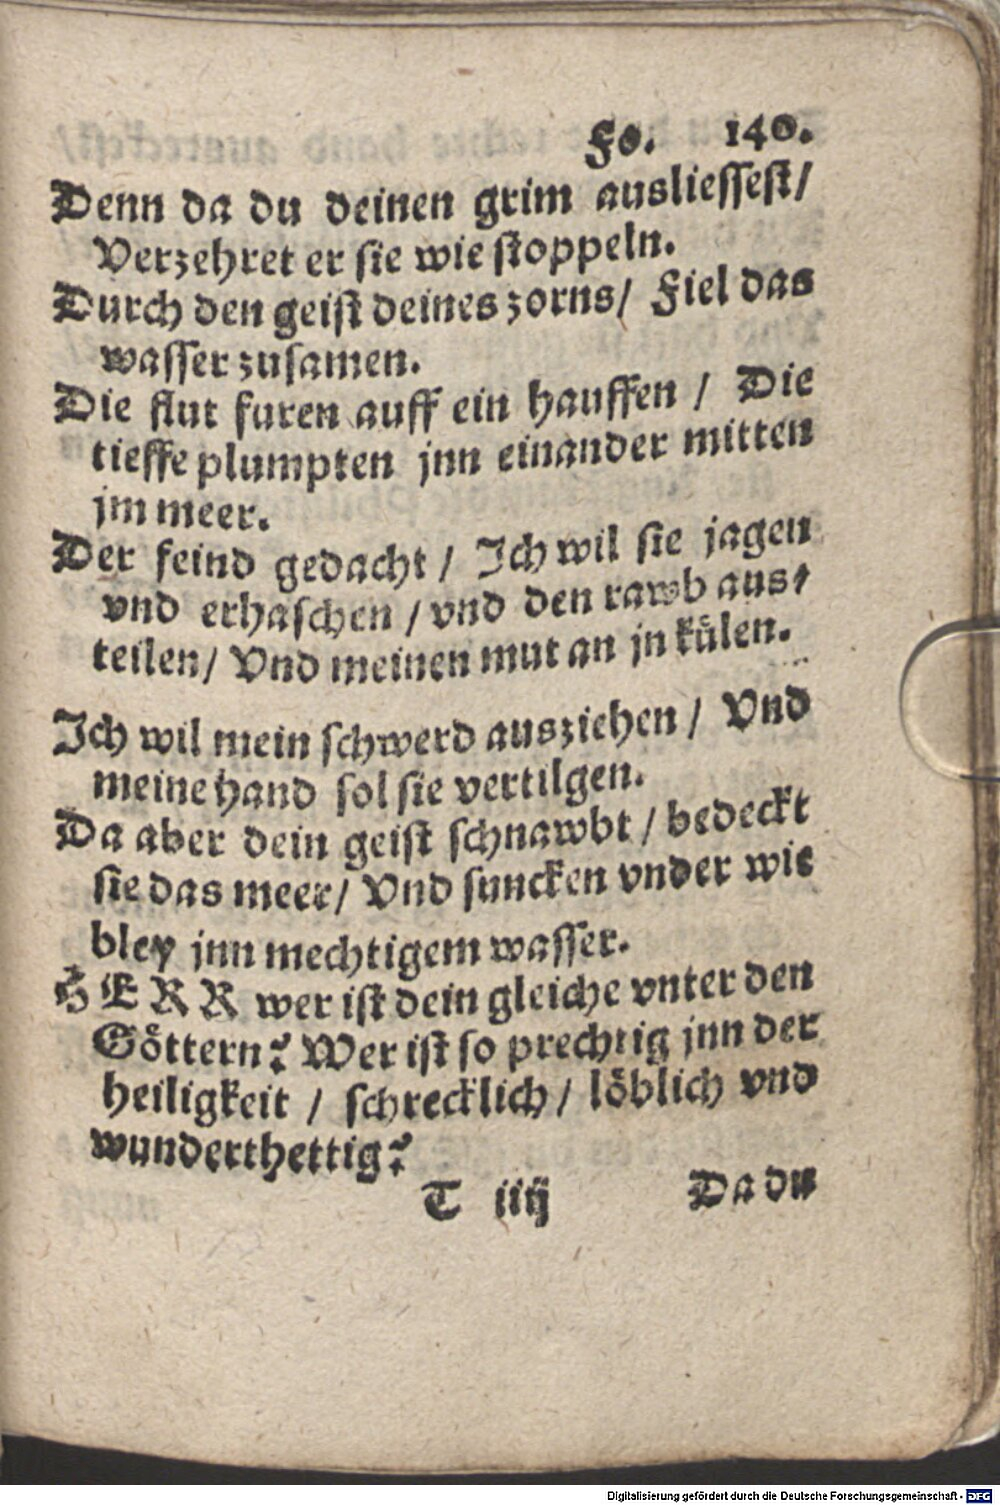 Fo. 140.
Denn da du deinen grim ausliessest/
Verzehret er sie wie stoppeln.
Durch den geist deines zorns/ Fiel das
wasser zusamen.
Die flut furen auff ein hauffen / Die
tieffe plumpten jnn einander mitten
jm meer.
Der feind gedacht / Ich wil sie jagen
vnd erhaschen / vnd den rawb aus⸗
teilen/ Vnd meinen mut an jn külen.
Ich wil mein schwerd ausziehen / Vnd
meine hand sol sie vertilgen.
Da aber dein geist schnawbt / bedeckt
sie das meer/ Vnd suncken vnder wie
bley jnn mechtigem wasser.
HERR wer ist dein gleiche vnter den
Göttern? Wer ist so prechtig jnn der
heiligkeit / schrecklich/ löblich vnd
wunderthettig?
T iiij Da du
Digitalisierung gefördert durch die Deutsche Forschungsgemeinschaft - DFG